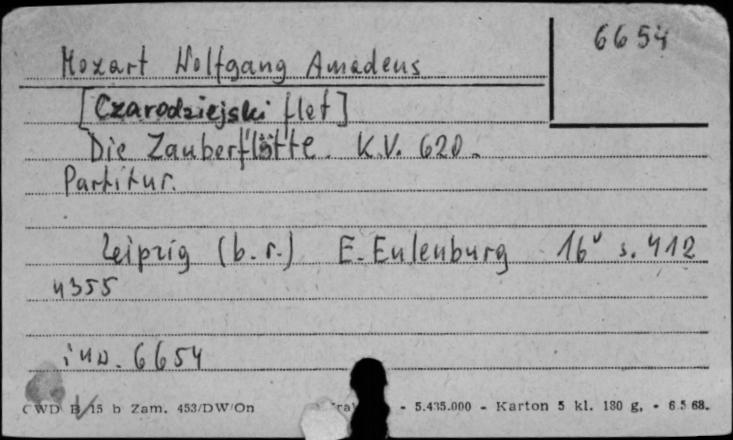 6654
Mozart Wolfgang Amadeus
[Czarodziejski flet]
Die Zauberflötte. K.V. 620.
Partitur.
Leipzig (b.r.) E. Eulenburg 16° s. 412
4355
inw. 6654
CWD B/15 b Zam. 453/DW/On - 5.435.000 - Karton 5 kl. 180 g. - 6.5.68.